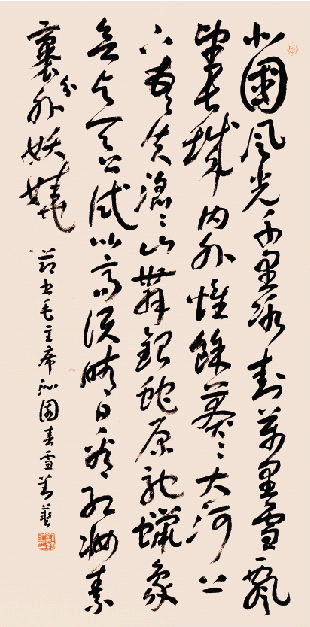 北國風光千里冰封萬里雪飄
望長城内外惟餘莽〻大河上
下頓失滔〻山舞銀蛇原馳蠟象
欲与天公試比高須晴日看红妝素
裹分外妖嬈
节书毛主席沁園春雪